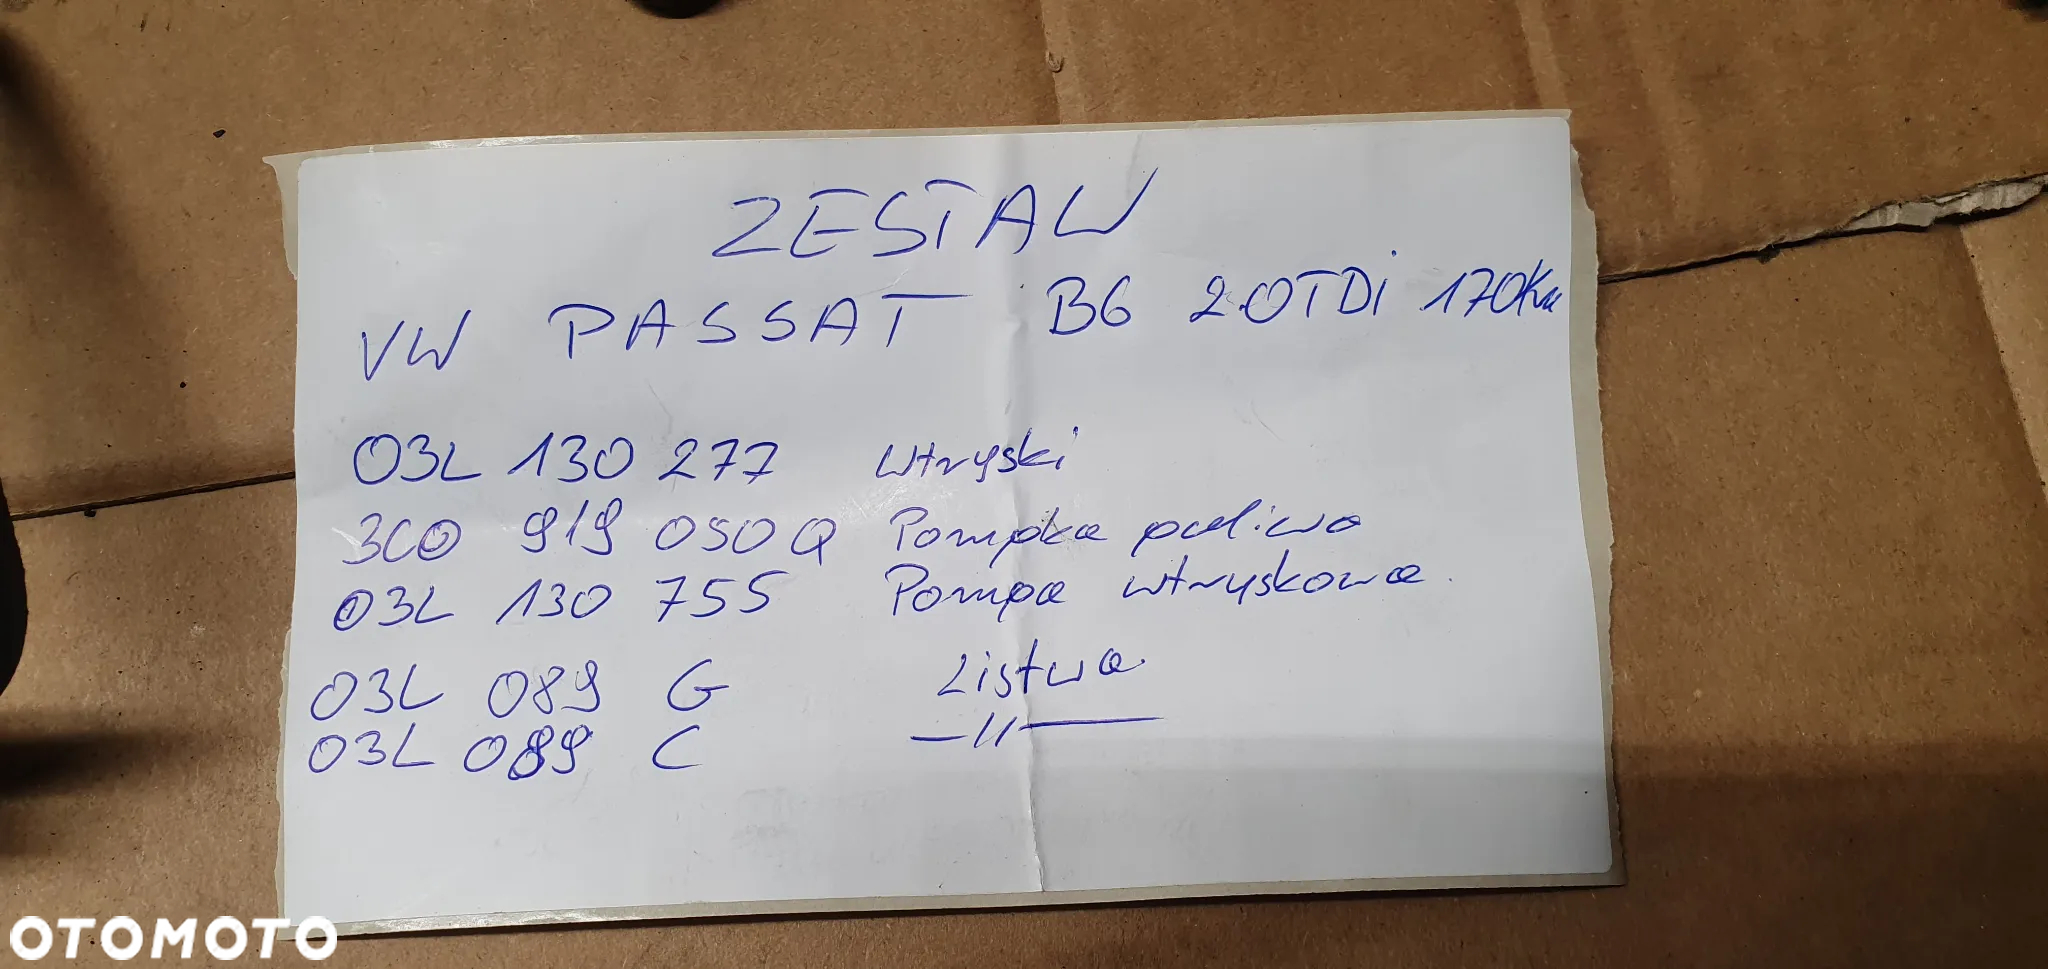 ZESTAW
VW PASSAT B6 2.0TDi 170KM
03L 130 277 Wtryski
3C0 919 050 Q Pompka paliwa
03L 130 755 Pompa wtryskowa.
03L 089 G Listwa
03L 089 C —//—
OTOMOTO